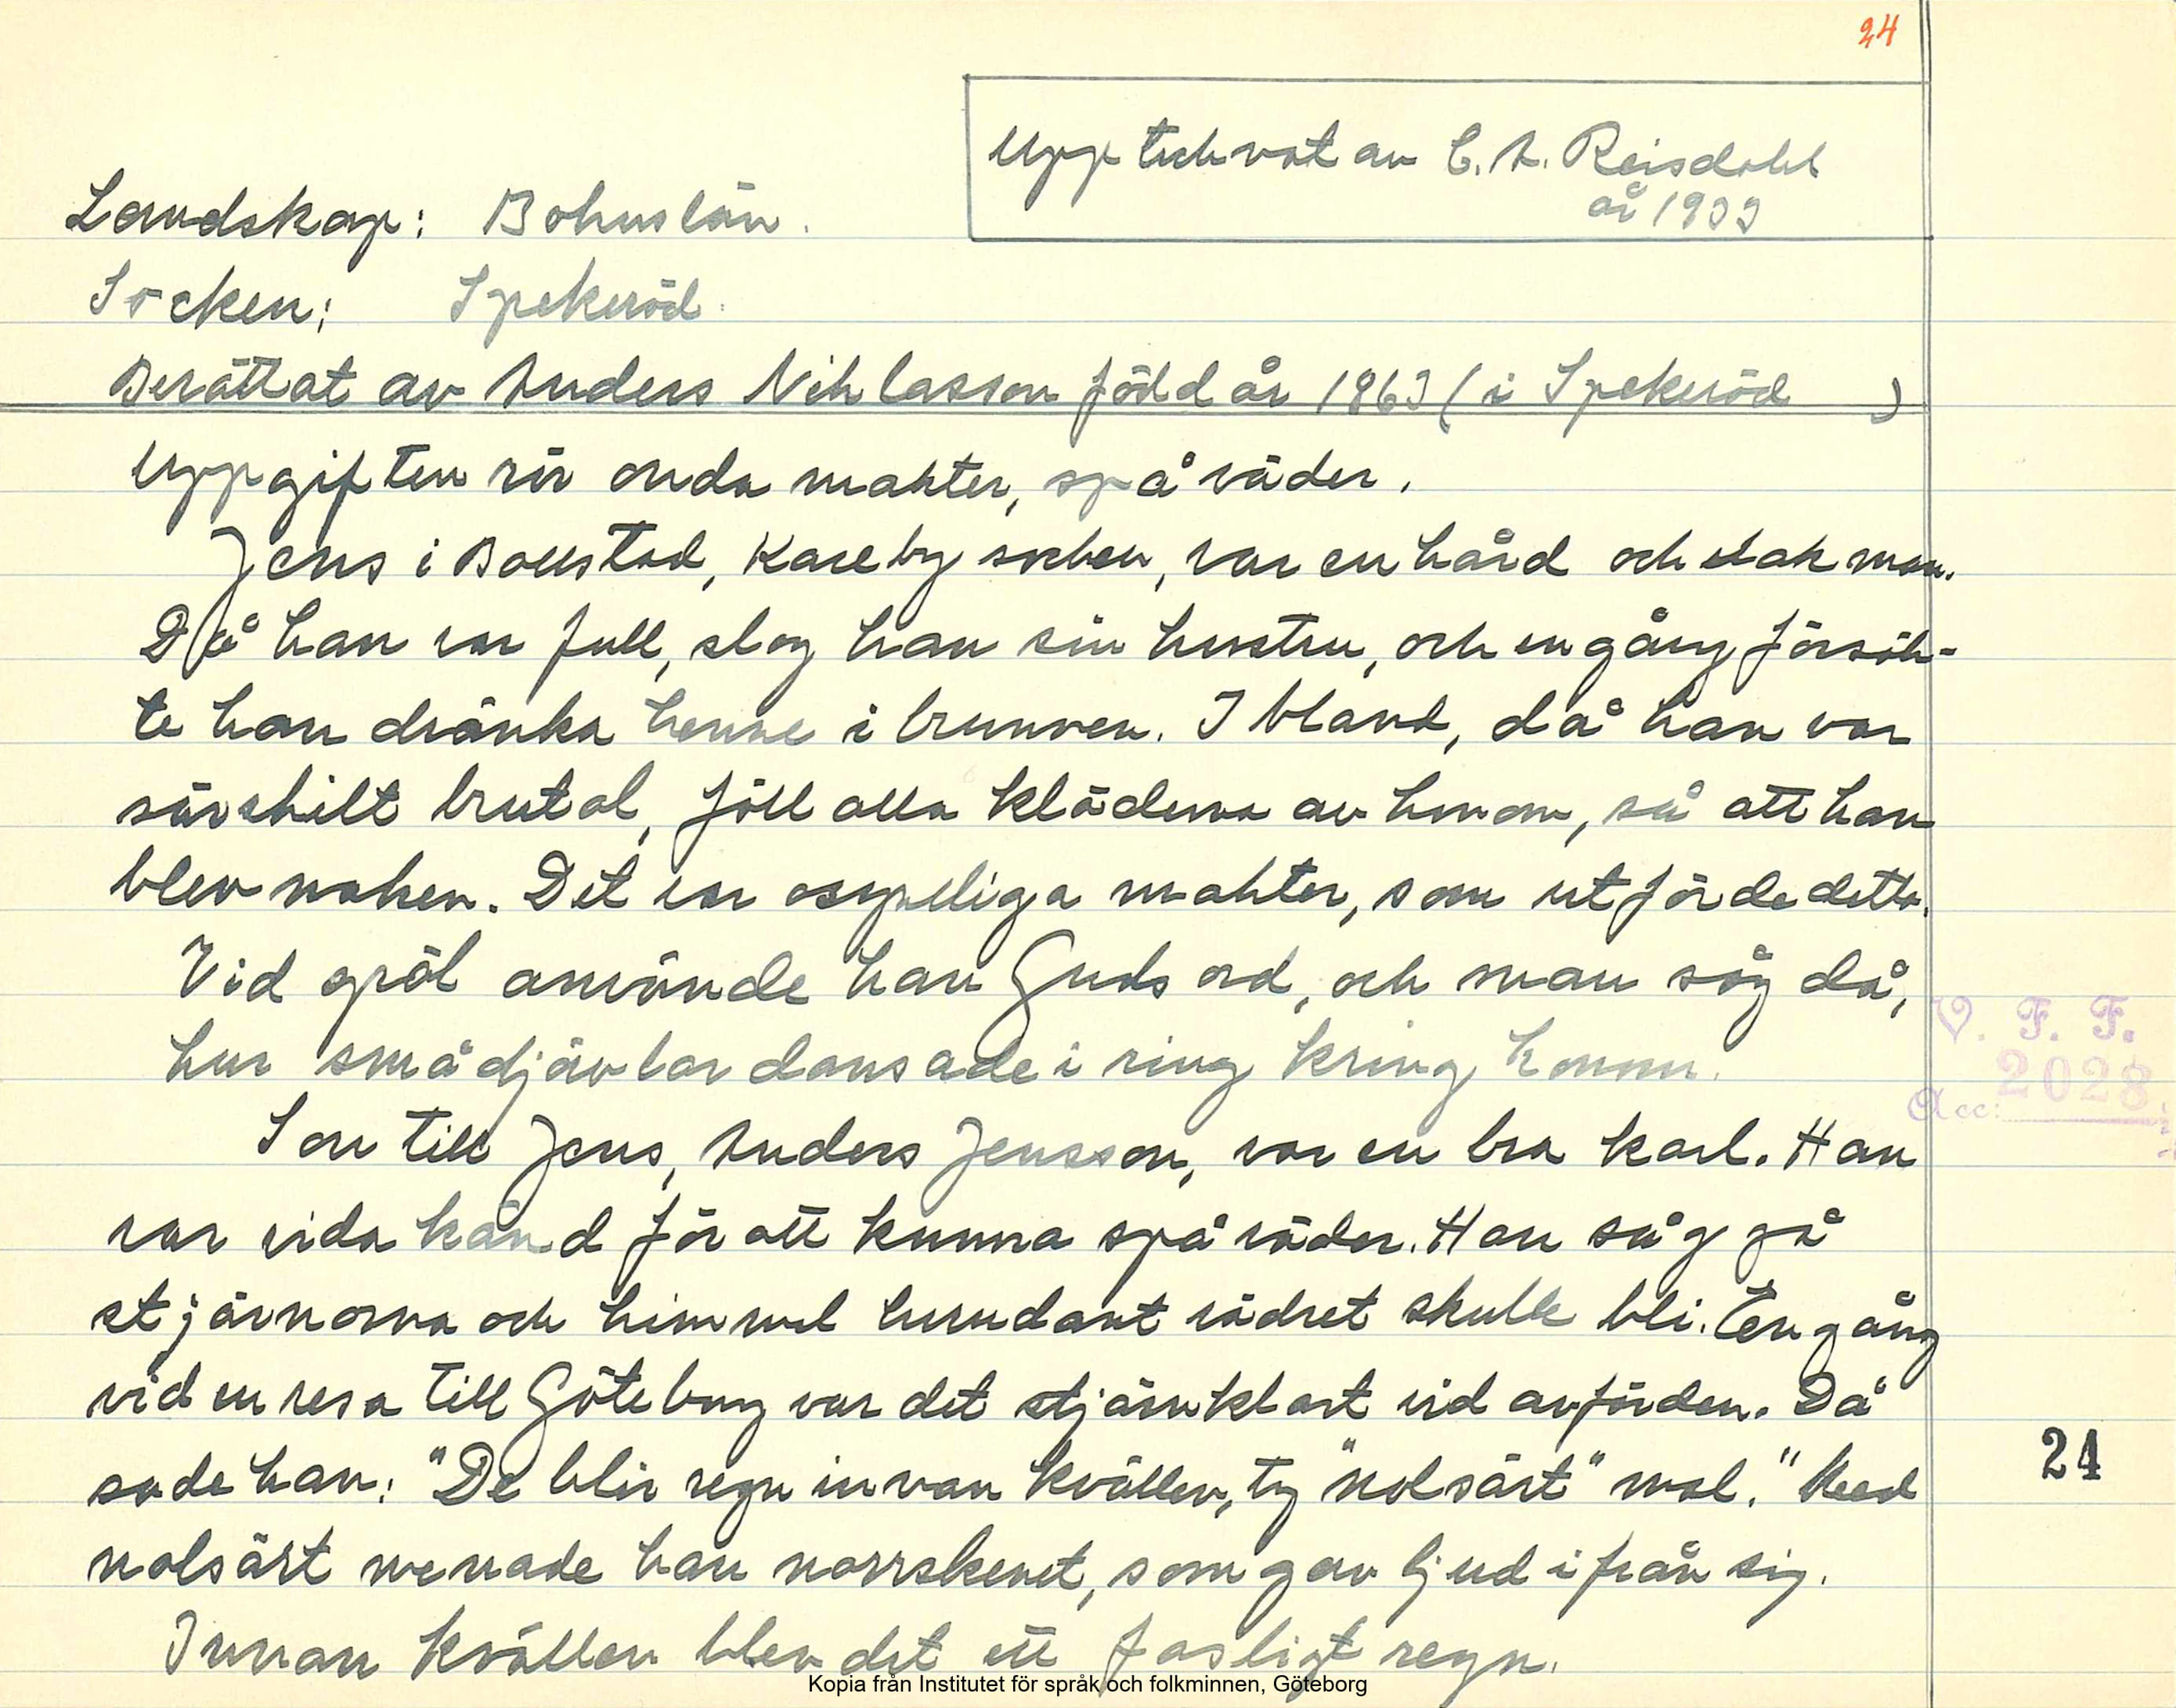 24
Upptecknat av C. A. Reisdahl
år 1933
Landskap: Bohuslän.
Socken: Spekeröd.
Berättat av Anders Niklasson född år 1863 (i Spekeröd )
Uppgiften rör onda makter, spå väder.
Jens i Bollstad, Kareby socken, var en hård och elak man.
Då han var full, slog han sin hustru, och en gång försök-
te han dränka henne i brunnen. Ibland, då han var
särskilt brutal, föll alla kläderna av honom, så att han
blev naken. Det var osynliga makter, som utförde detta.
Vid gräl använde han Guds ord, och man såg då,
hur smådjävlar dansade i ring kring honom.
V. F. F.
Acc: 2028
Son till Jens, Anders Jensson, var en bra karl. Han
var vida känd för att kunna spå väder. Han såg på
stjärnorna och himmel hurudant vädret skulle bli. En gång
vid en resa till Göteborg var det stjärnklart vid avfärden. Då
sade han: "De blir regn innan kvällen, ty "nolsärt" mol." Med
24
nolsärt menade han norrskenet, som gav ljud ifrån sig.
Innan kvällen blev det ett fasligt regn.
Kopia från Institutet för språk och folkminnen, Göteborg